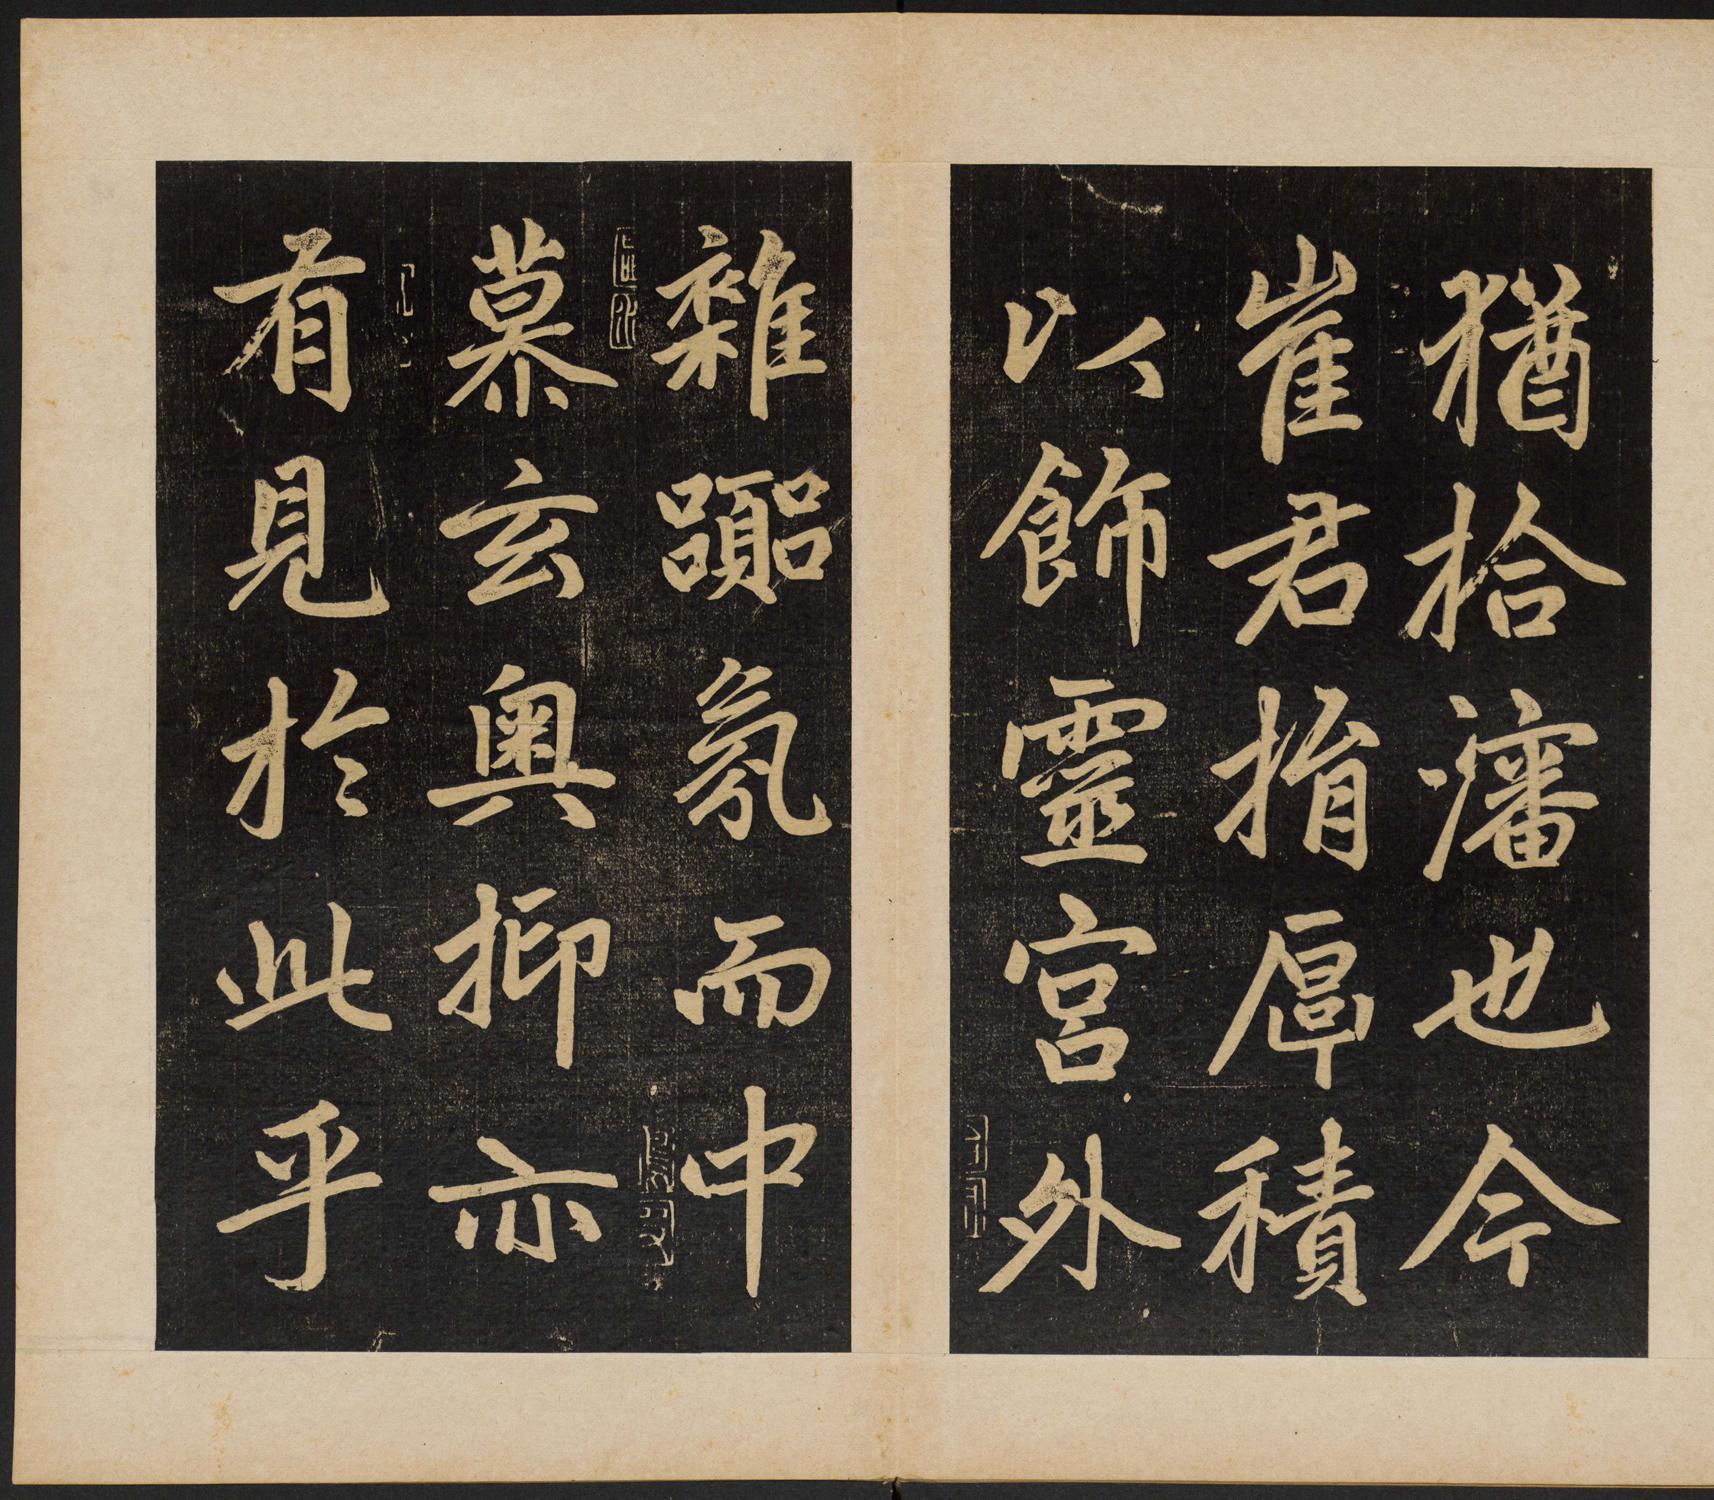 猶拾瀋也今
崔君捐厚積
以飾靈宮外
雜囂氛而中
慕玄奧抑亦
有見於此乎